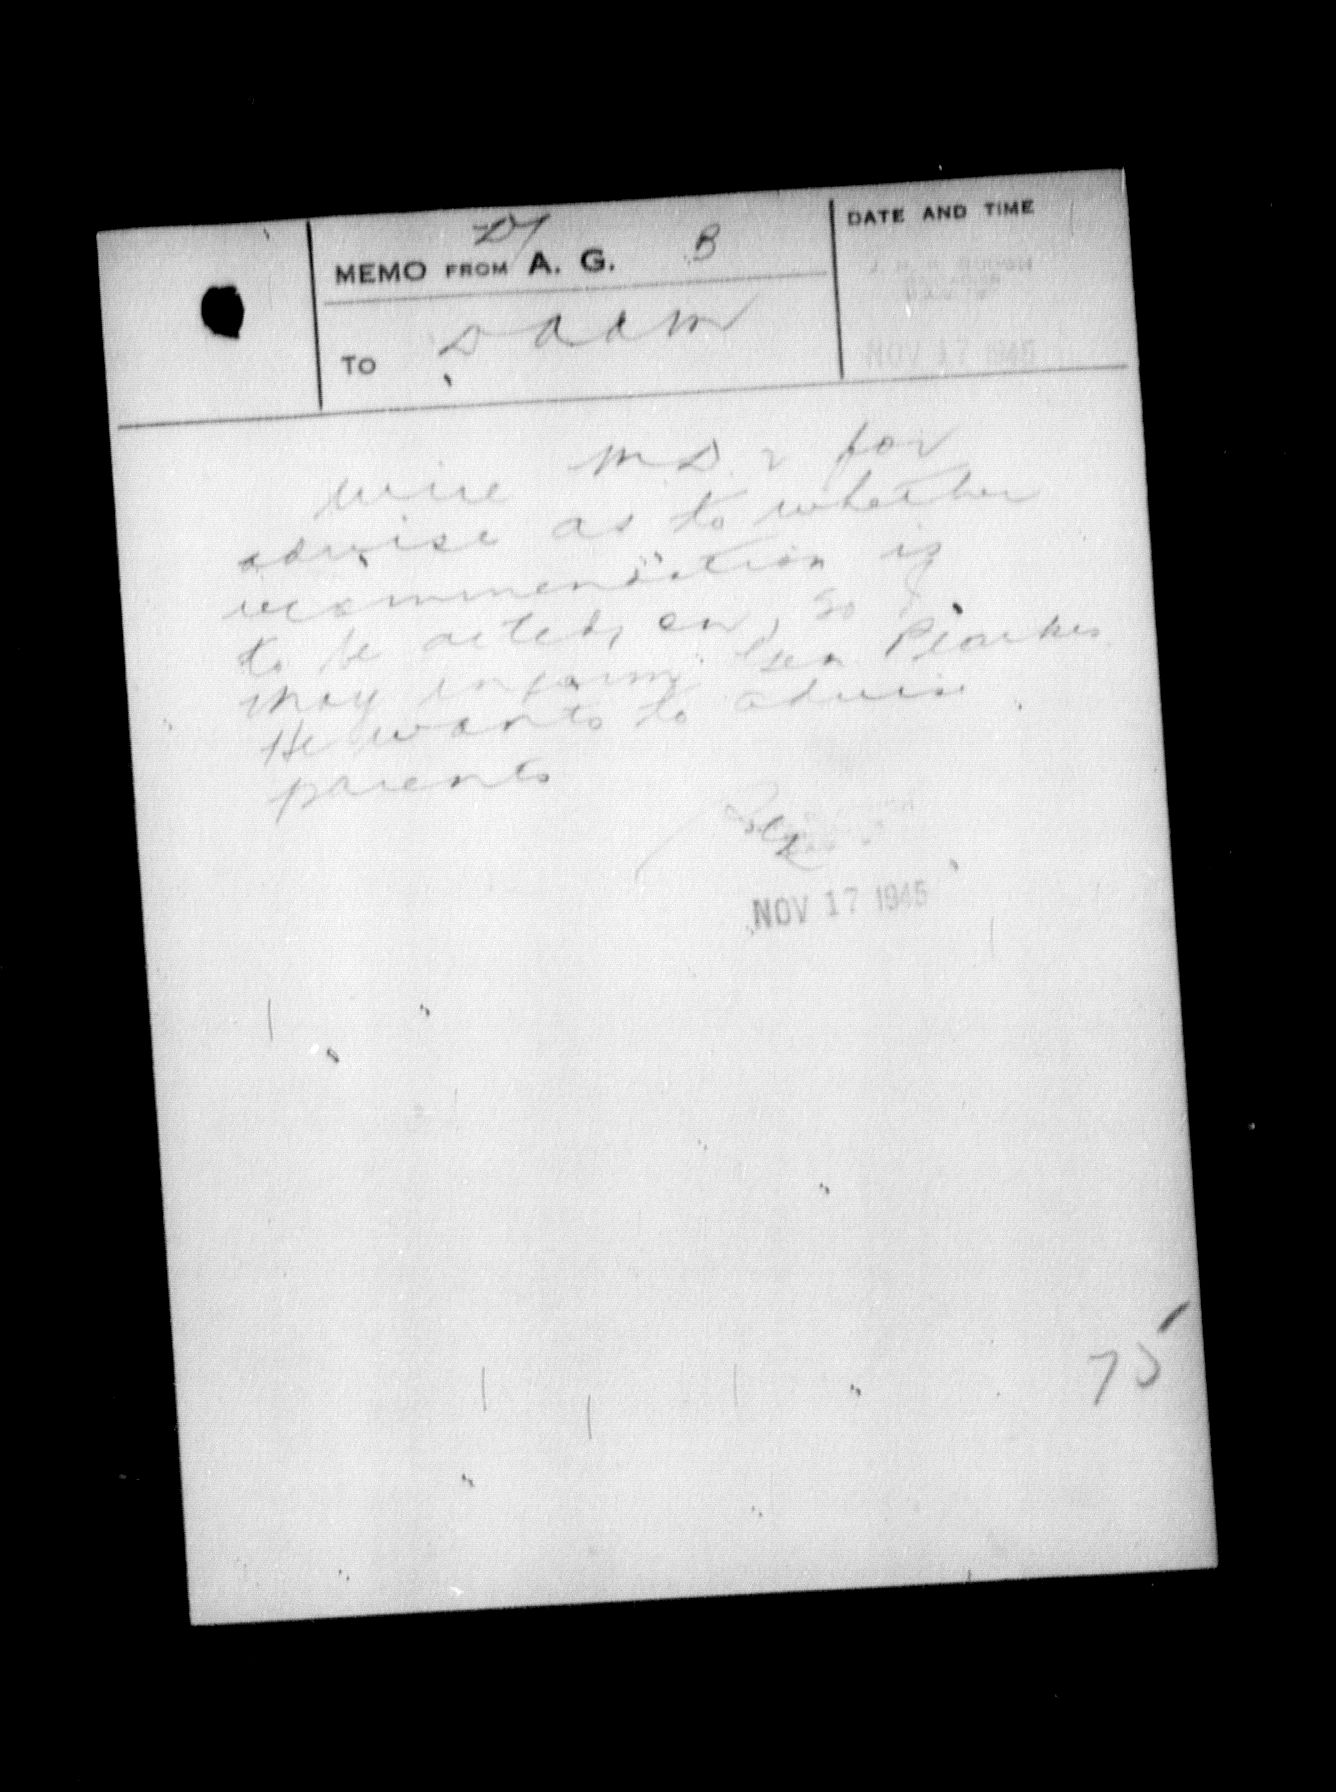 Dy
MEMO FROM A. G. B
DATE AND TIME
TO DAAM
NOV 17 1945
Wire M D 2 for
advise as to whether
recommendation is
to be acted on, so I
may inform Gen Pearkes
He wants to advise
parents
NOV 17 1945
75